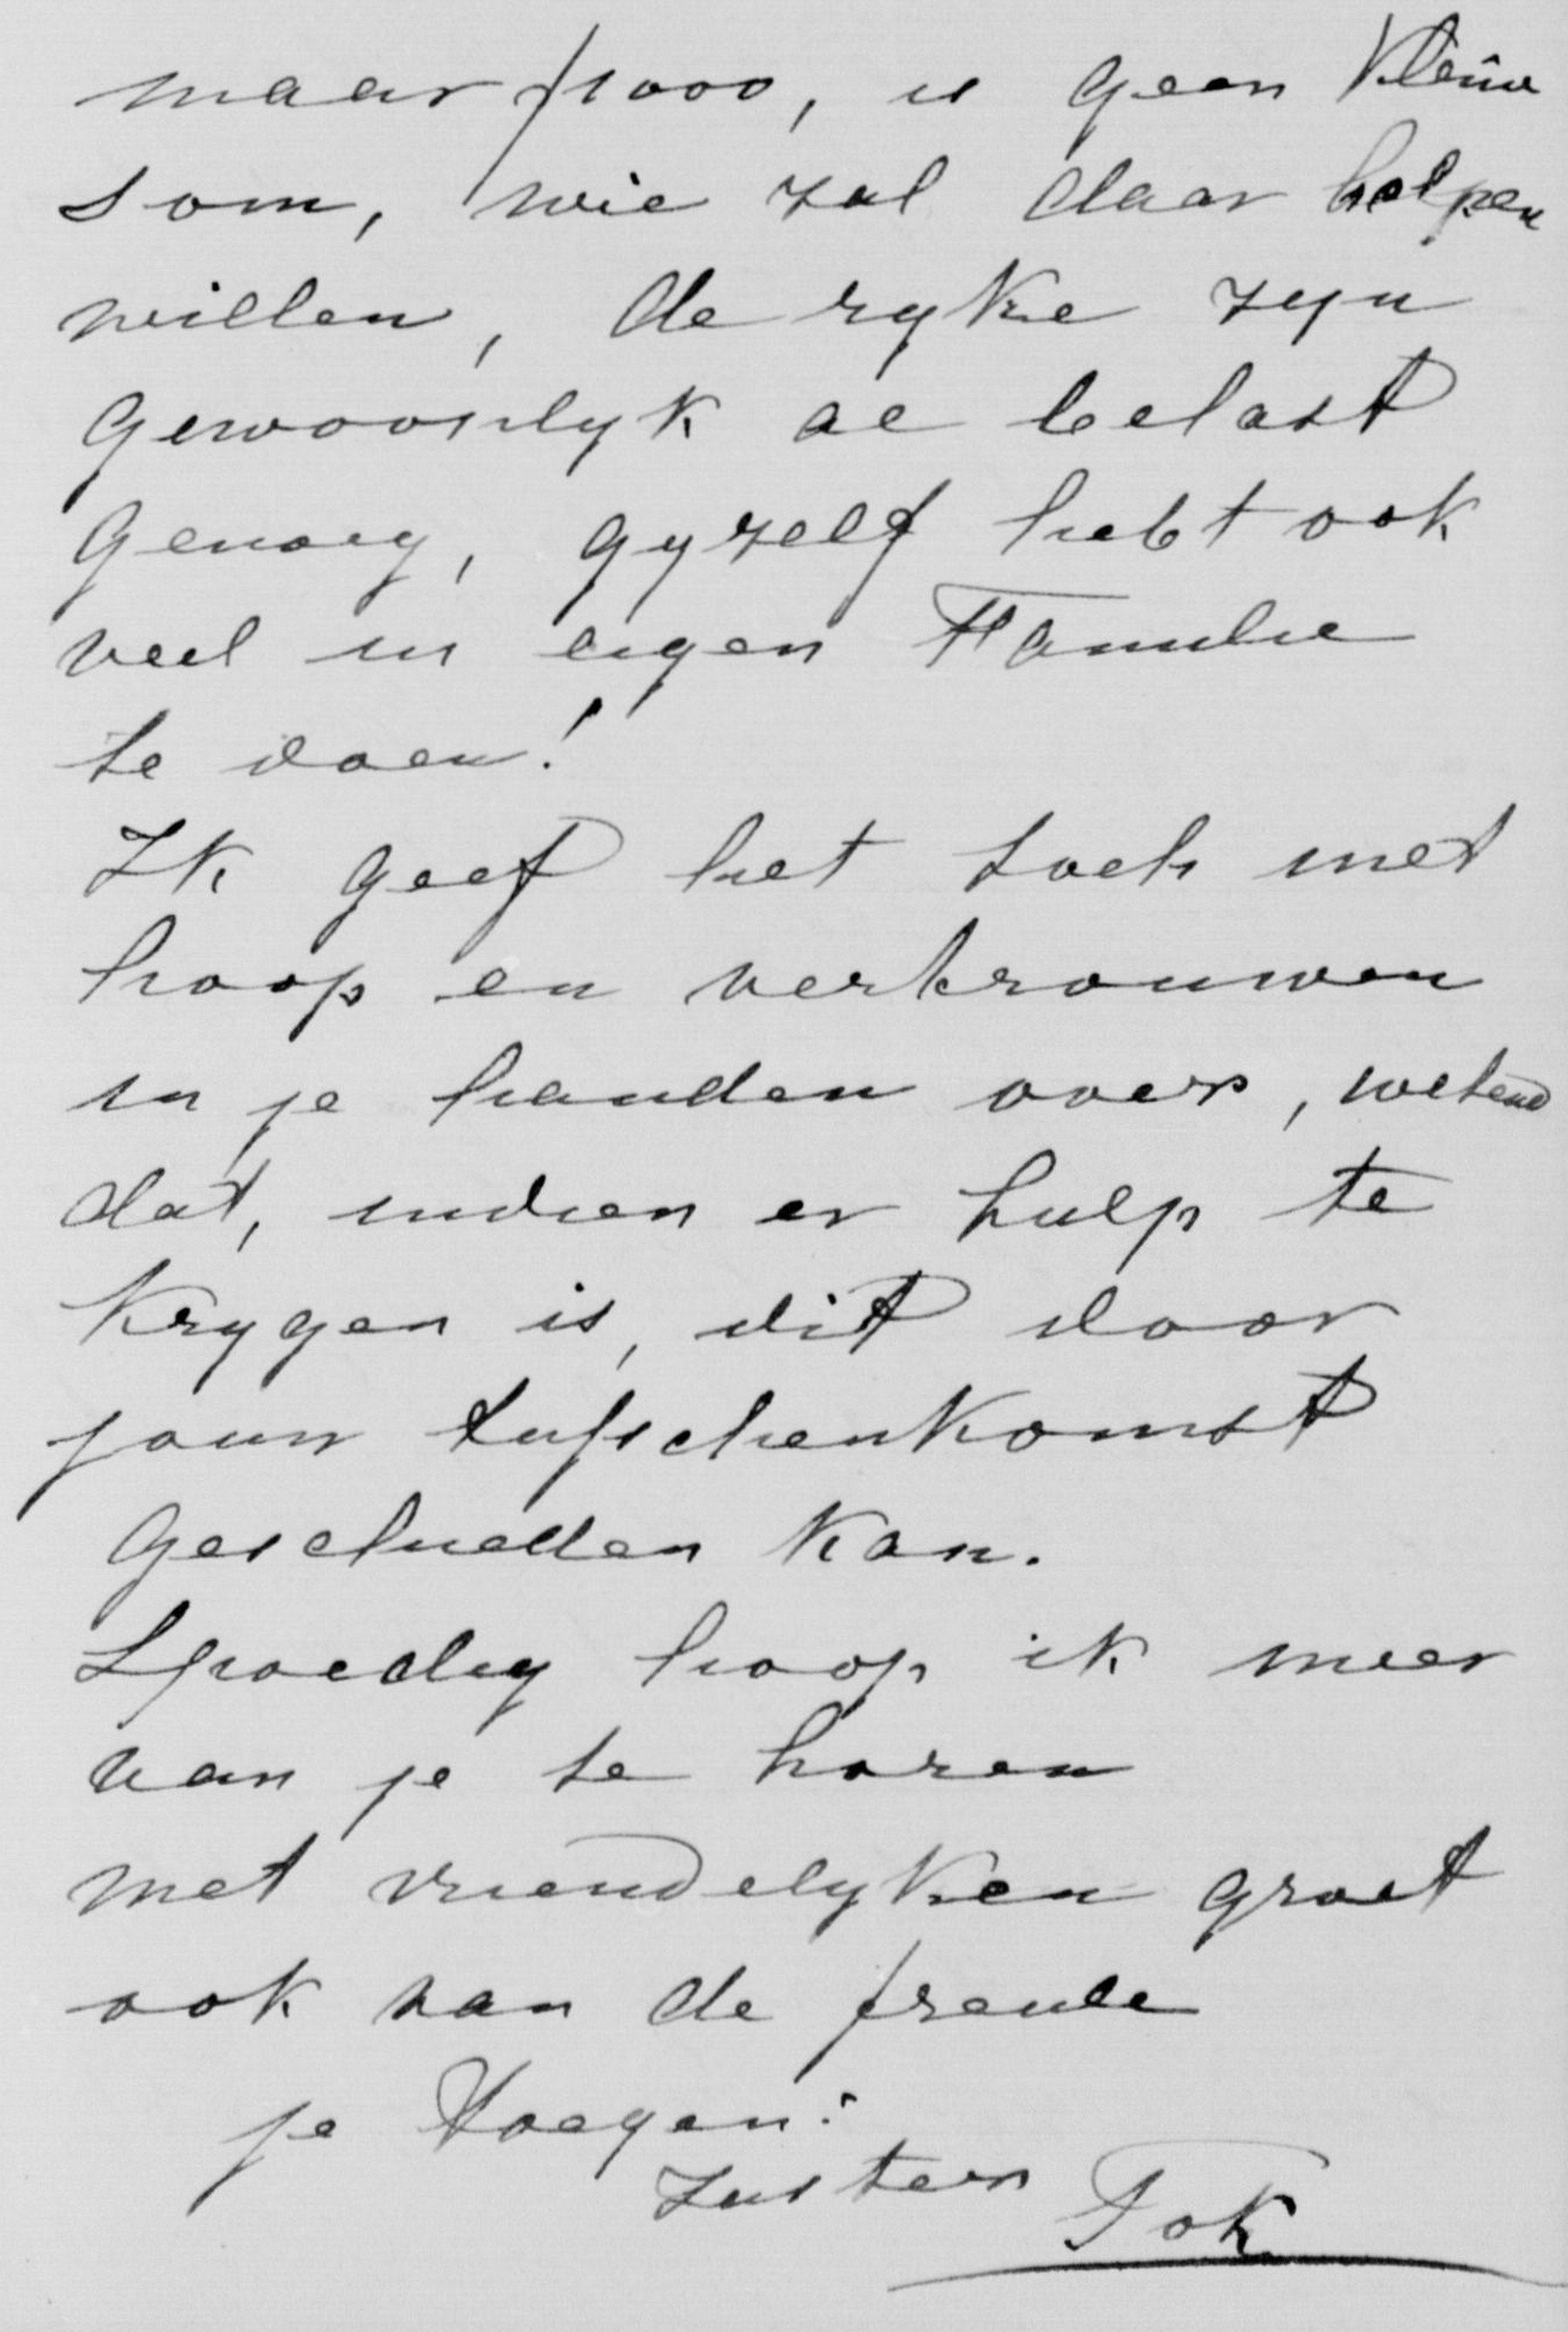 maar f1000, is geen kleine
som, wie zal daar helpen
willen, de ryke zyn
gewoonlyk al belast
genoeg, gyzelf hebt ook
veel in eigen Familie
te doen!
Ik geef het toch met
hoop en vertrouwen
in je handen over, wetend
dat, indien er hulp te
krygen is, dit door
jouw tusschenkomst
geschieden kan.
Spoedig hoop ik meer
van je te horen
met vriendelyken groet
ook van de freule
je toegen:
Zuster Fok